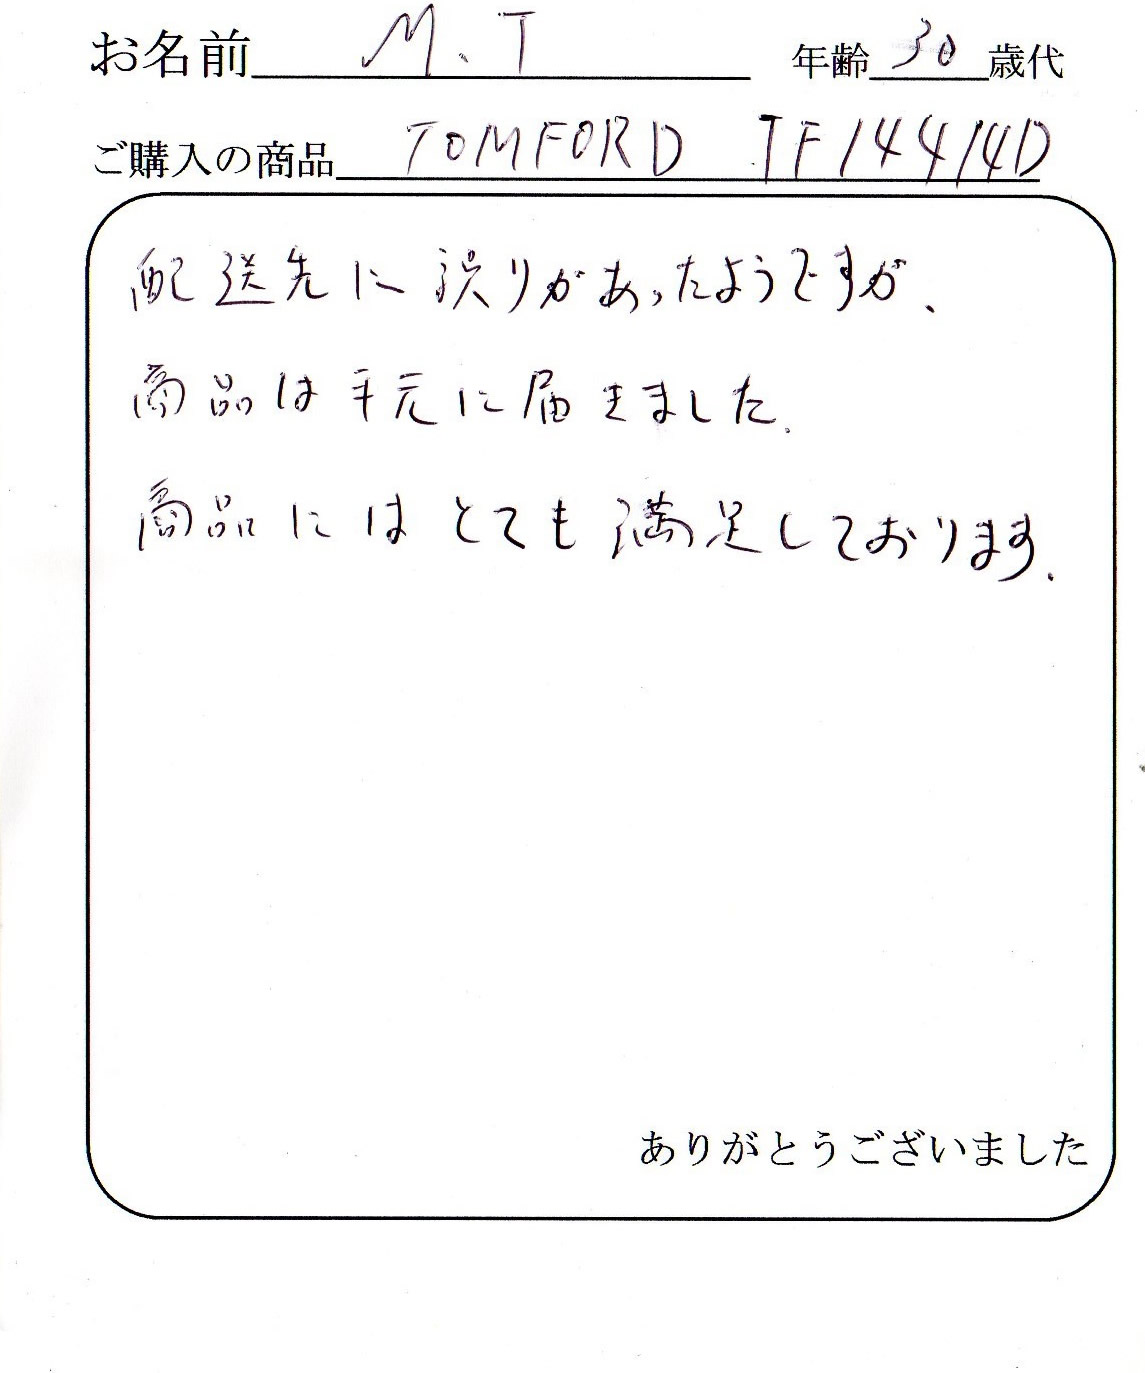 お名前 M.T 年齢 30 歳代
ご購入の商品 TOMFORD TF14414D
配送先に誤りがあったようですが、
商品は手元に届きました.
商品にはとても満足しております.
ありがとうございました